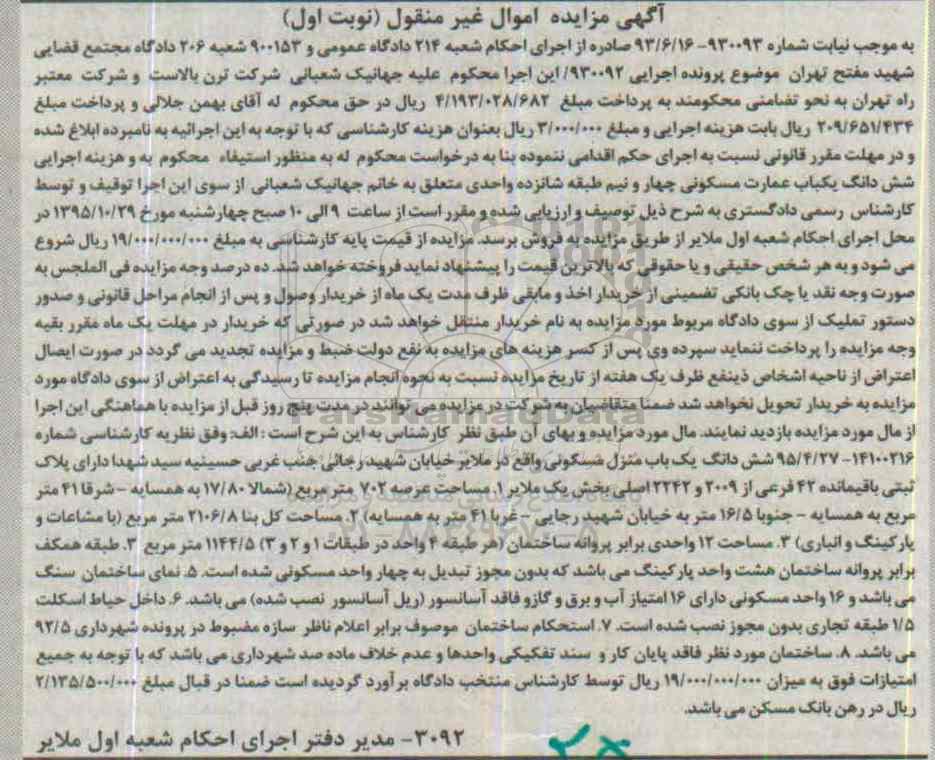 آگهی مزایده اموال غیر منقول (نوبت اول)
به موجب نیابت شماره ۹۳۰۰۹۳- ۹۳/۶/۱۶ صادره از اجرای احکام شعبه ۲۱۴ دادگاه عمومی و ۹۰۰۱۵۳ شعبه ۲۰۶ دادگاه مجتمع قضایی
شهید مفتح تهران موضوع پرونده اجرایی ۹۳۰۰۹۲/ این اجرا محکوم علیه جهانیک شعبانی شرکت ترن بالاست و شرکت معتبر
راه تهران به نحو تضامنی محکومند به پرداخت مبلغ ۴/۱۹۳/۰۲۸/۶۸۲ ریال در حق محکوم له آقای بهمن جلالی و پرداخت مبلغ
۲۰۹/۶۵۱/۴۳۴ ریال بابت هزینه اجرایی و مبلغ ۳/۰۰۰/۰۰۰ ریال بعنوان هزینه کارشناسی که با توجه به این اجرائیه به نامبرده ابلاغ شده
و در مهلت مقرر قانونی نسبت به اجرای حکم اقدامی ننموده بنا به درخواست محکوم له به منظور استیفاء محکوم به و هزینه اجرایی
شش دانگ یکباب عمارت مسکونی چهار و نیم طبقه شانزده واحدی متعلق به خانم جهانیک شعبانی از سوی این اجرا توقیف و توسط
کارشناس رسمی دادگستری به شرح ذیل توصیف و ارزیابی شده و مقرر است از ساعت ۹ الی ۱۰ صبح چهارشنبه مورخ ۱۳۹۵/۱۰/۲۹ در
محل اجرای احکام شعبه اول ملایر از طریق مزایده به فروش برسد. مزایده از قیمت پایه کارشناسی به مبلغ ۱۹/۰۰۰/۰۰۰/۰۰۰ ریال شروع
می شود و به هر شخص حقیقی و یا حقوقی که بالاترین قیمت را پیشنهاد نماید فروخته خواهد شد. ده درصد وجه مزایده فی المجلس به
صورت وجه نقد یا چک بانکی تضمینی از خریدار اخذ و مابقی ظرف مدت یک ماه از خریدار وصول و پس از انجام مراحل قانونی و صدور
دستور تملیک از سوی دادگاه مربوط مورد مزایده به نام خریدار منتقل خواهد شد در صورتی که خریدار در مهلت یک ماه مقرر بقیه
وجه مزایده را پرداخت ننماید سپرده وی پس از کسر هزینه های مزایده به نفع دولت ضبط و مزایده تجدید می گردد در صورت ایصال
اعتراض از ناحیه اشخاص ذینفع ظرف یک هفته از تاریخ مزایده نسبت به نحوه انجام مزایده تا رسیدگی به اعتراض از سوی دادگاه مورد
مزایده به خریدار تحویل نخواهد شد ضمنا متقاضیان به شرکت در مزایده می توانند در مدت پنج روز قبل از مزایده با هماهنگی این اجرا
از مال مورد مزایده بازدید نمایند. مال مورد مزایده و بهای آن طبق نظر کارشناس به این شرح است: الف: وفق نظریه کارشناسی شماره
۱۴۱۰۰۲۱۶- ۹۵/۴/۲۷ شش دانگ یک باب منزل مسکونی واقع در ملایر خیابان شهید رجائی جنب غربی حسینیه سید شهدا دارای پلاک
ثبتی باقیمانده ۴۲ فرعی از ۲۰۰۹ و ۲۲۴۲ اصلی بخش یک ملایر ۱. مساحت عرصه ۷۰۲ متر مربع (شمالا ۱۷/۸۰ به همسایه - شرقا ۴۱ متر
مربع به همسایه - جنوبا ۱۶/۵ متر به خیابان شهید رجایی - غربا ۴۱ متر به همسایه) ۲. مساحت کل بنا ۲۱۰۶/۸ متر مربع (با مشاعات و
پارکینگ و انباری) ۳. مساحت ۱۲ واحدی برابر پروانه ساختمان (هر طبقه ۴ واحد در طبقات ۱ و ۲ و ۳) ۱۱۴۴/۵ متر مربع ۳. طبقه همکف
برابر پروانه ساختمان هشت واحد پارکینگ می باشد که بدون مجوز تبدیل به چهار واحد مسکونی شده است. ۵. نمای ساختمان سنگ
می باشد و ۱۶ واحد مسکونی دارای ۱۶ امتیاز آب و برق و گاز و فاقد آسانسور (ریل آسانسور نصب شده) می باشد. ۶. داخل حیاط اسکلت
۱/۵ طبقه تجاری بدون مجوز نصب شده است. ۷. استحکام ساختمان موصوف برابر اعلام ناظر سازه مضبوط در پرونده شهرداری ۹۲/۵
می باشد. ۸. ساختمان مورد نظر فاقد پایان کار و سند تفکیکی واحدها و عدم خلاف ماده صد شهرداری می باشد که با توجه به جمیع
امتیازات فوق به میزان ۱۹/۰۰۰/۰۰۰/۰۰۰ ریال توسط کارشناس منتخب دادگاه برآورد گردیده است ضمنا در قبال مبلغ ۲/۱۳۵/۵۰۰/۰۰۰
ریال در رهن بانک مسکن می باشد.
۳۰۹۲- مدیر دفتر اجرای احکام شعبه اول ملایر
ParsNamadData